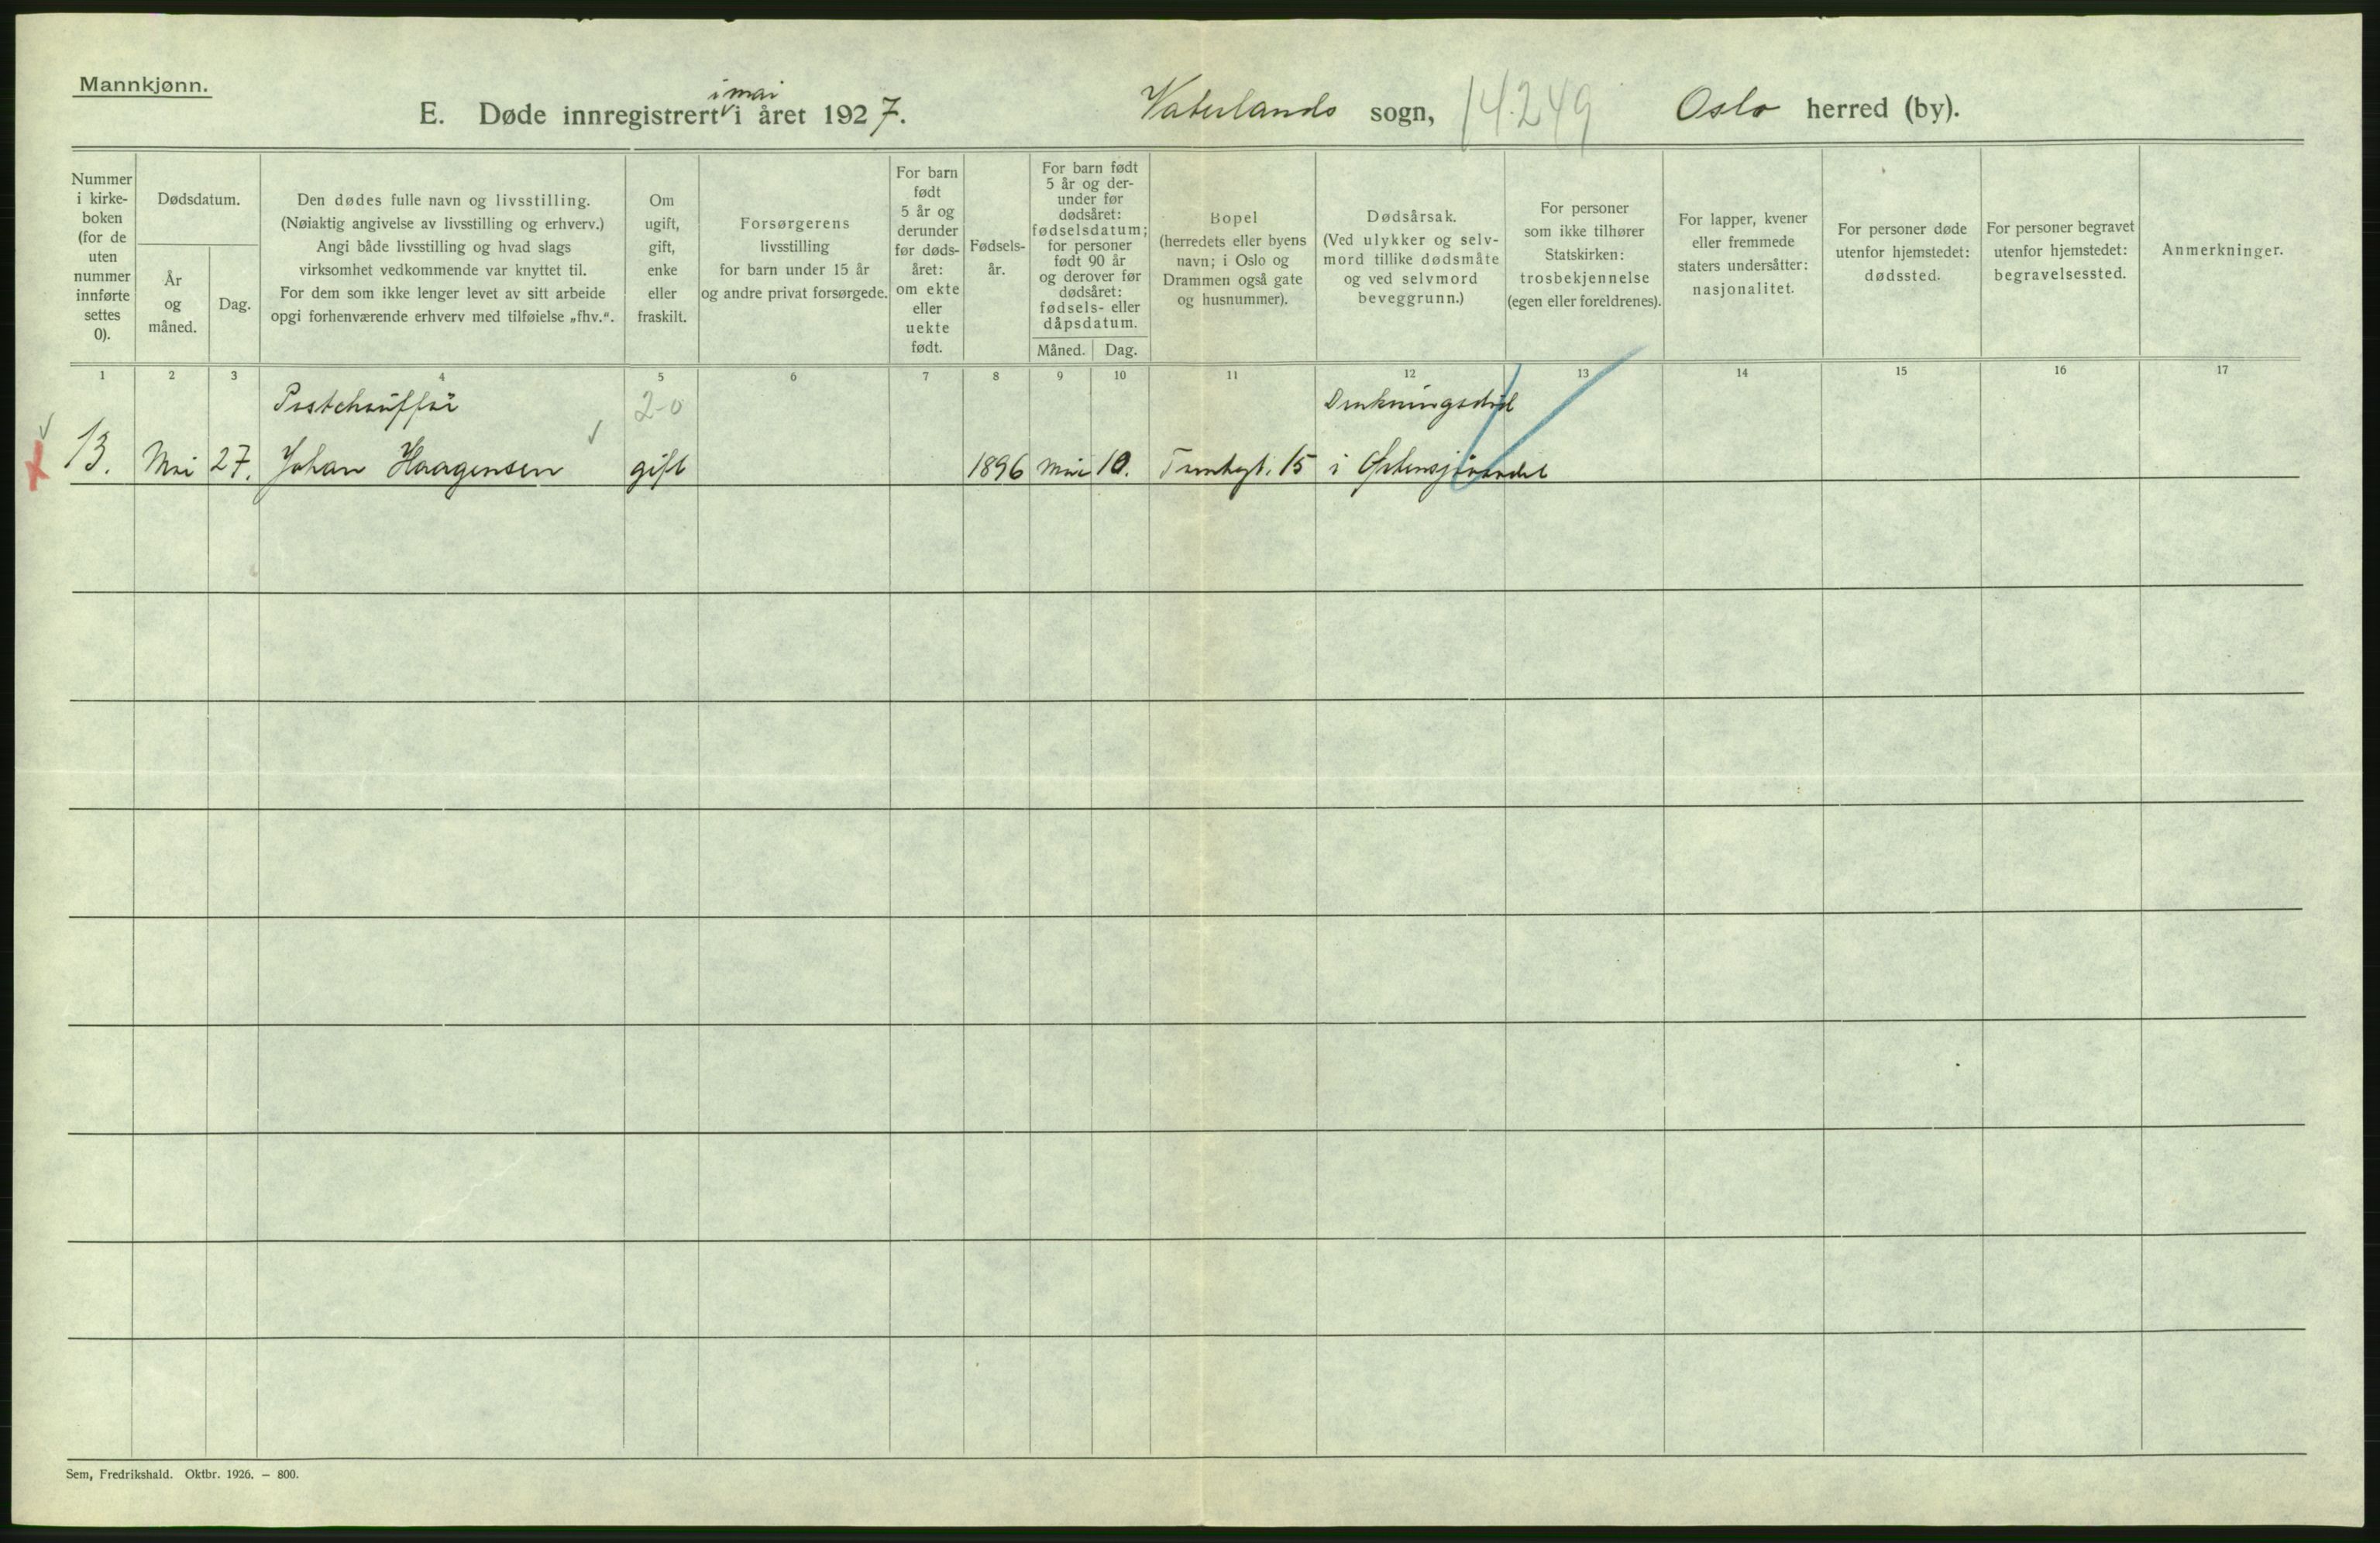 Mannkjønn.
E. Døde innregistrert i mai i året 1927.
Vaterlands sogn, 14.249 Oslo herred (by).
Nummer i kirke- boken (for de uten nummer innførte settes 0).
Dødsdatum.
År og måned.
Dag.
Den dødes fulle navn og livsstilling.
(Nøiaktig angivelse av livsstilling og erhverv.)
Angi både livsstilling og hvad slags
virksomhet vedkommende var knyttet til.
For dem som ikke lenger levet av sitt arbeide
opgi forhenværende erhverv med tilføielse „fhv.“.
Om ugift, gift, enke eller fraskilt.
Forsørgerens
livsstilling
for barn under 15 år
og andre privat forsørgede.
For barn født 5 år og derunder før døds- året: om ekte eller uekte født.
Fødsels- år.
For barn født 5 år og der- under før dødsåret: fødselsdatum; for personer født 90 år og derover før dødsåret: fødsels- eller dåpsdatum.
Måned. Dag.
Bopel
(herredets eller byens
navn; i Oslo og
Drammen også gate
og husnummer).
Dødsårsak.
(Ved ulykker og selv-
mord tillike dødsmåte
og ved selvmord
beveggrunn.)
For personer
som ikke tilhører
Statskirken:
trosbekjennelse
(egen eller foreldrenes).
For lapper, kvener
eller fremmede
staters undersåtter:
nasjonalitet.
For personer døde
utenfor hjemstedet:
dødssted.
For personer begravet
utenfor hjemstedet:
begravelsessted.
Anmerkninger.
1 2 3 4 5 6 7 8 9 10 11 12 13 14 15 16 17
Postchauffør 2-0 Drukningsdød
13. Mai 27. Johan Haagensen gift 1896 Mai 10. Tomtegt. 15 i Østensjøvandet
Sem, Fredrikshald. Oktbr. 1926. — 800.